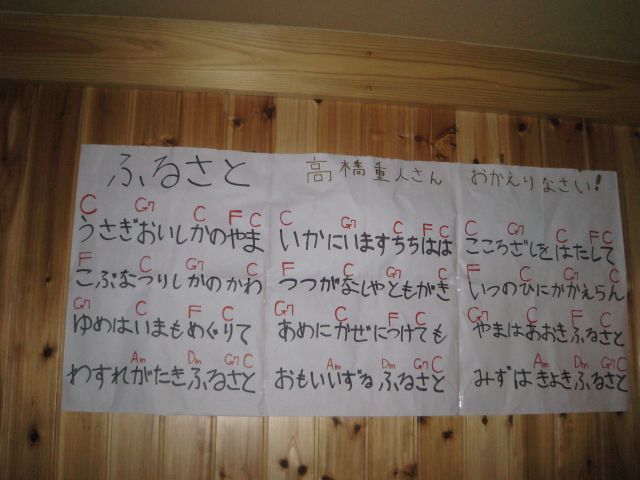 ふるさと
高橋重人さん おかえりなさい!
C G7 C F C
うさぎおいしかのやま
F C G7 C
こぶなつりしかのかわ
G7 C F C
ゆめはいまもめぐりて
Am Dm G7 C
わすれがたきふるさと
C G7 C F C
いかにいますちちはは
F C G7 C
つつがなしやともがき
G7 C F C
あめにかぜにつけても
Am Dm G7 C
おもいいずるふるさと
C G7 C F C
こころざしをはたして
F C G7 C
いつのひにかかえらん
G7 C F C
やまはあおきふるさと
Am Dm G7 C
みずはきよきふるさと